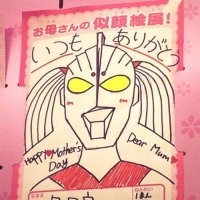 お母さんの似顔絵展!
いつも ありがとう
Happy Mother's
Day
Dear Mum